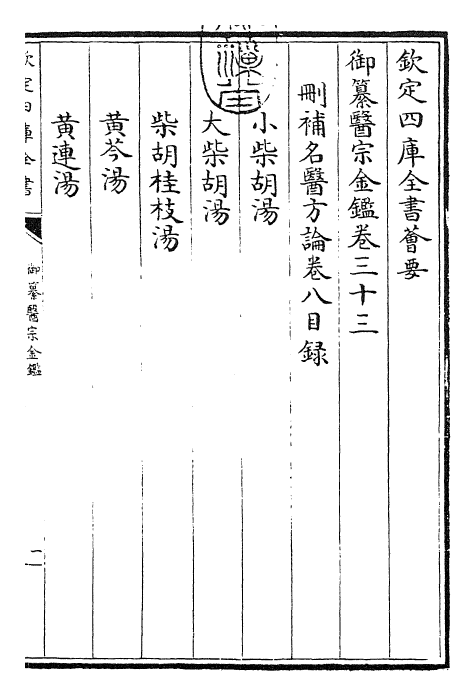 欽定四庫全書薈要
御纂醫宗金鑑卷三十三
刪補名醫方論卷八目録
小柴胡湯
大柴胡湯
柴胡桂枝湯
黄芩湯
黄連湯
欽定四庫全書
御纂醫宗金鑑